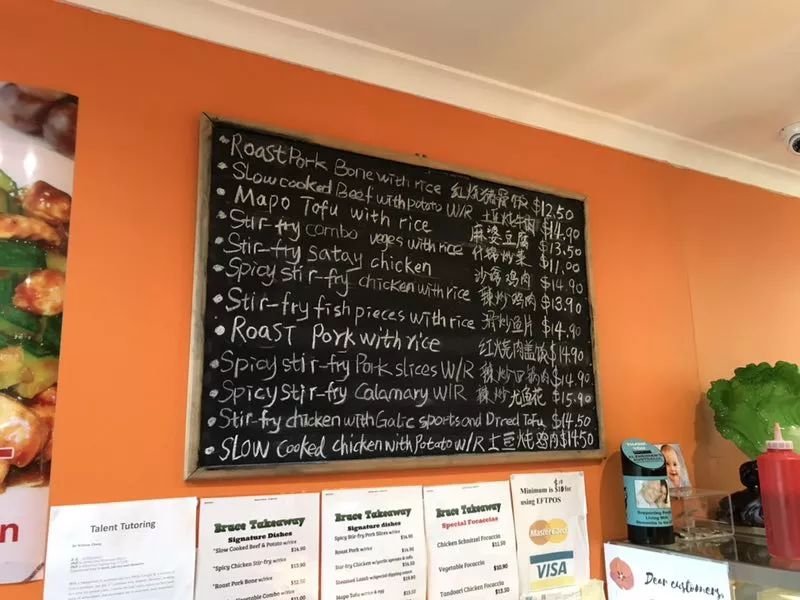 • Roast Pork Bone with rice 红烧猪骨饭 $12.50
• Slow cooked Beef with potato W/R 土豆炖牛肉 $14.90
• Mapo Tofu with rice 麻婆豆腐 $13.50
• Stir-fry combo veges with rice 什锦炒菜 $11.00
• Stir-fry satay chicken 沙嗲鸡肉 $14.90
• Spicy stir-fry chicken with rice 辣炒鸡肉 $13.90
• Stir-fry fish pieces with rice 滑炒鱼片 $14.90
• Roast Pork with rice 红烧肉盖饭 $14.90
• Spicy stir-fry Pork slices W/R 辣炒回锅肉 $14.90
• Spicy stir-fry Calamary W/R 辣炒尤鱼花 $15.90
• Stir-fry chicken with Galic sports and Dired Tofu $14.50
• SLOW Cooked chicken with Potato W/R 土豆炖鸡肉 $14.50
n
Talent Tutoring
Bruce Takeaway
Signature Dishes
*Slow Cooked Beef & Potato w/rice
$14.90
*Spicy Chicken Stir-fry w/rice
*Roast Pork Bone w/rice
Bruce Takeaway
Signature dishes
Spicy Stir-fry Pork Slices w/rice
$14.90
Roast Pork w/rice
Mapo Tofu w/rice & egg
Bruce Takeaway
Special Focaccias
Chicken Schnitzel Focaccia
$11.50
Vegetable Focaccia
$10.90
Tandoori Chicken Focaccia
$13.50
Minimum is $10 for
using EFTPOS
MasterCard
VISA
Dear customers,